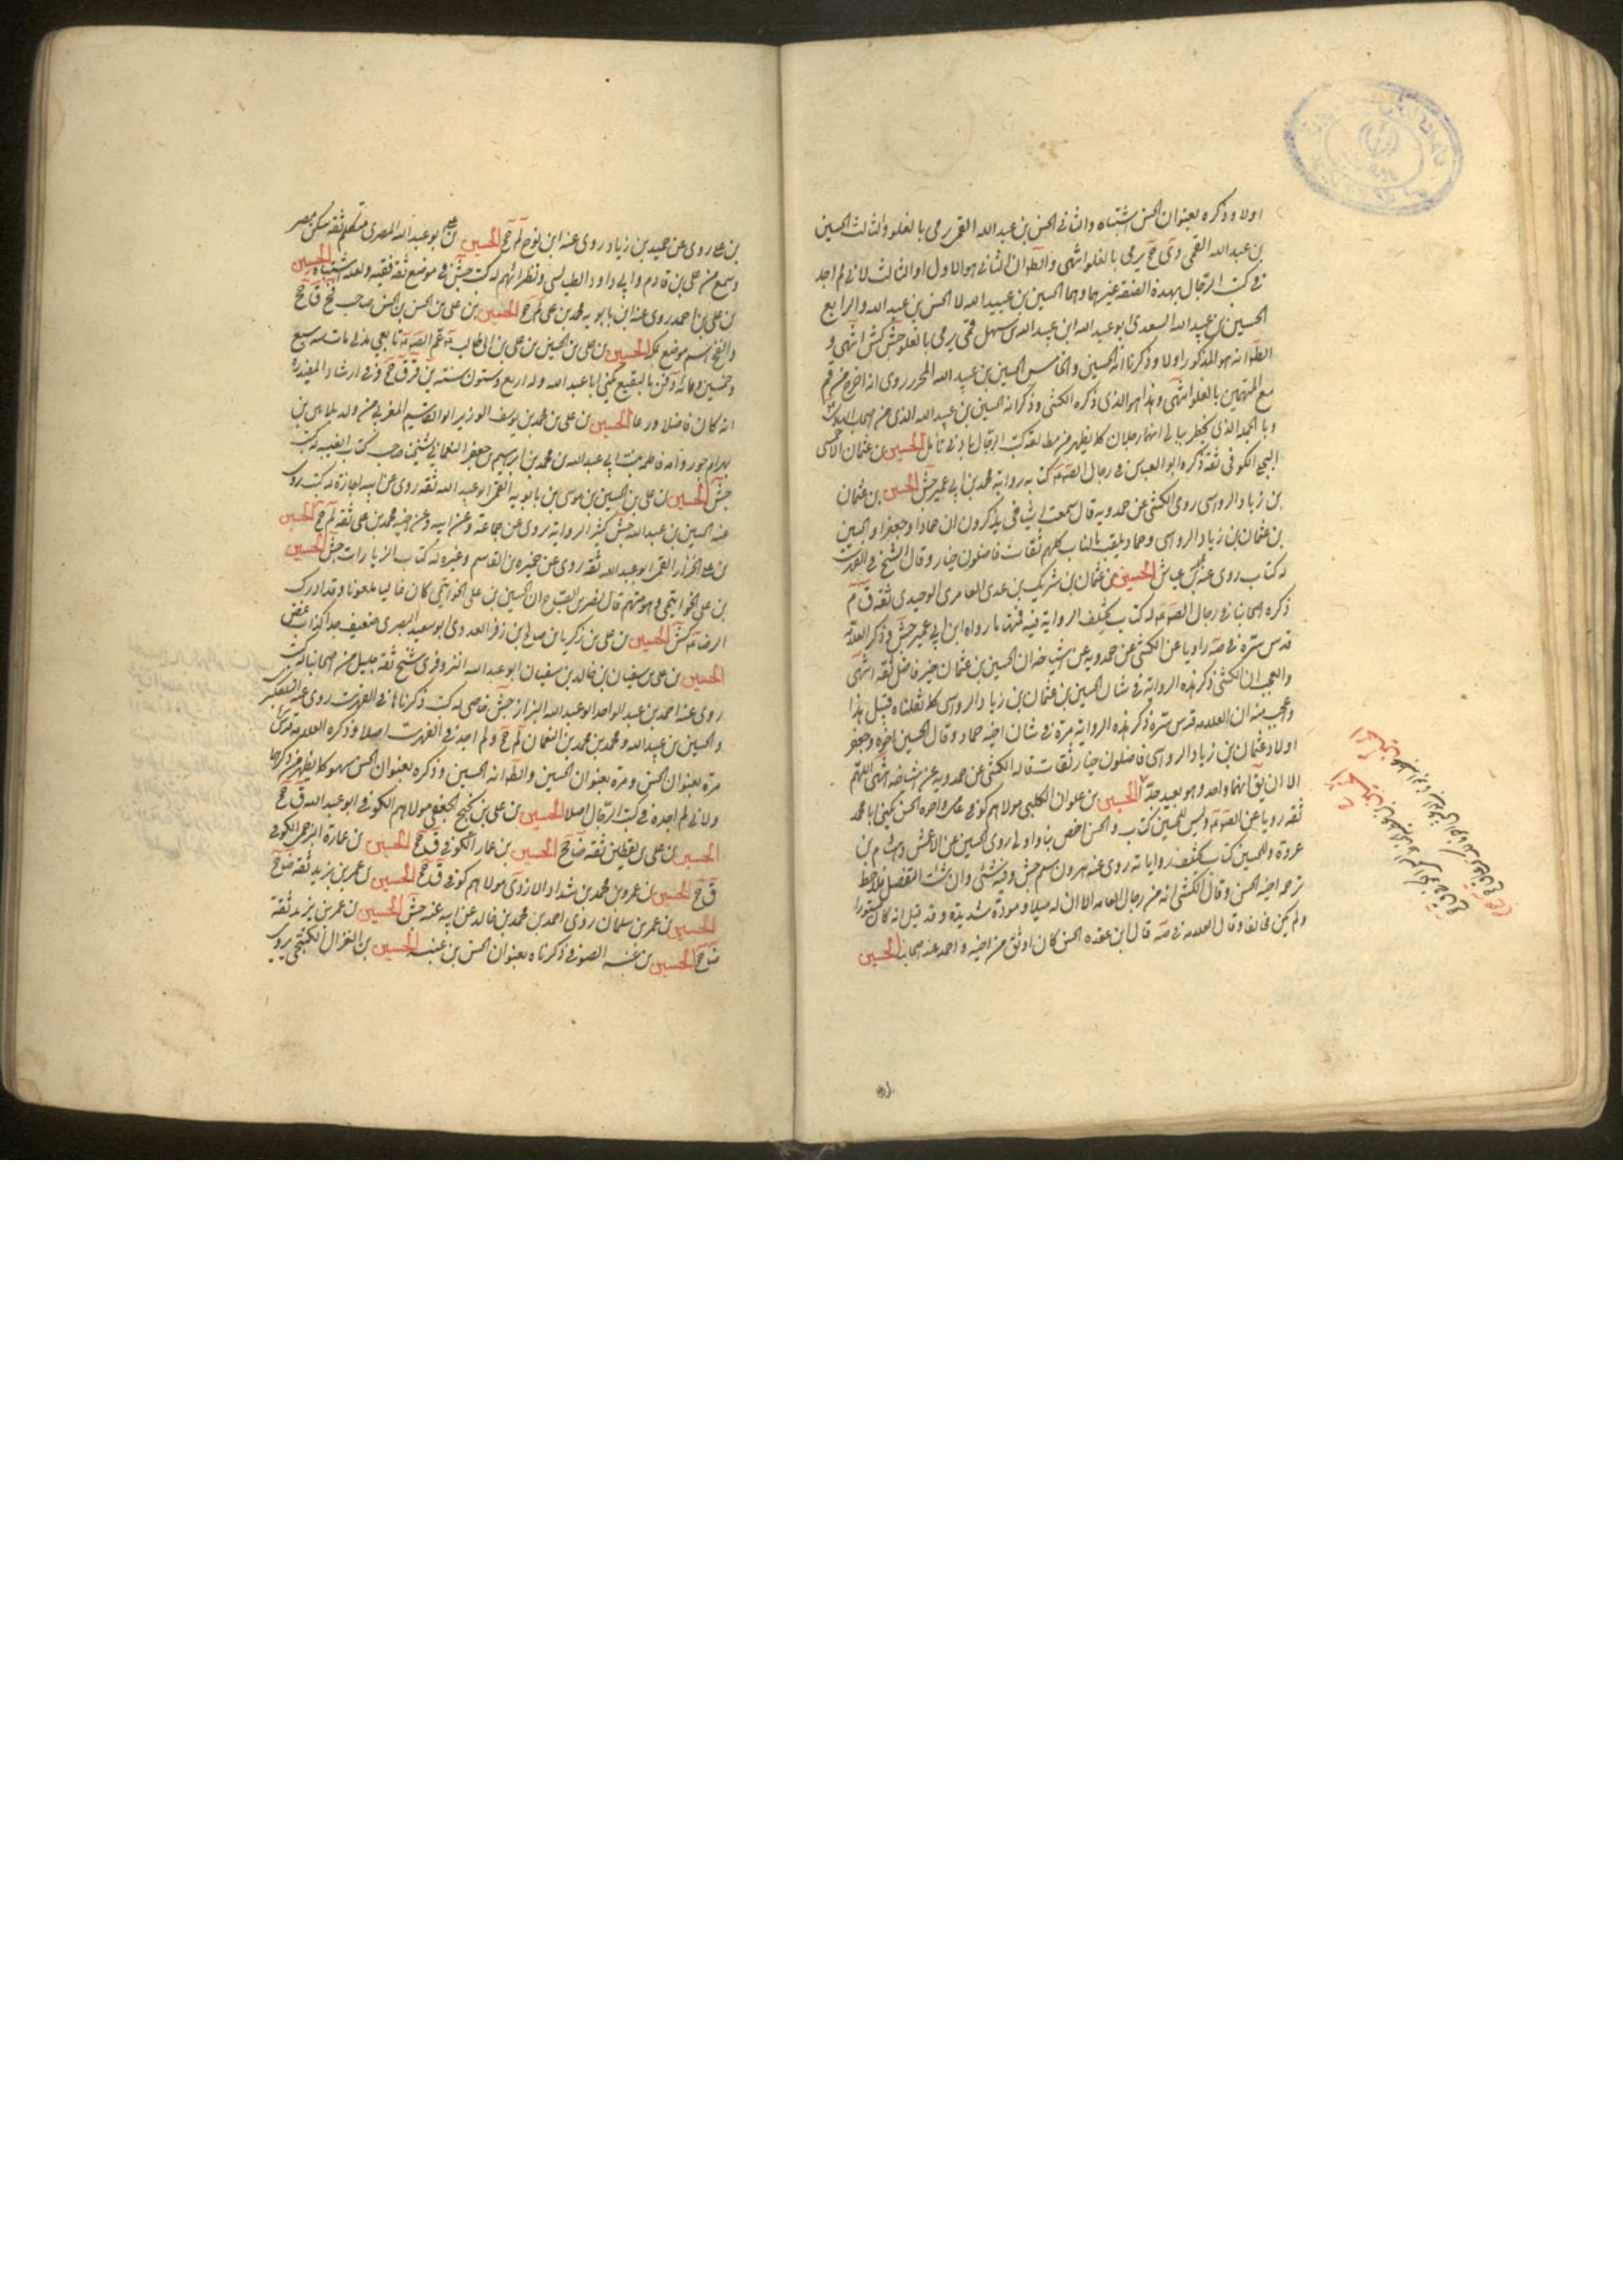 اولا وذكره بعنوان الحسن اشتباه والثاني الحسن بن عبدالله القمي يرمى بالغلو والثالث الحسين
بن عبدالله القمي دى جخ يرمى بالغلو انتهى والظ ان الثاني هو الاول او الثالث لاني لم اجد
في كتب الرجال بهذه الصفة غيرهما وهما الحسين بن عبيد الله لا الحسن بن عبد الله والرابع
الحسين بن عبيد الله السعدي ابو عبد الله ابن عبيد الله بن سهل قمي يرمى بالغلو جش كش انتهى و
الظ انه هو المذكور اولا وذكرنا انه الحسين والخامس الحسين بن عبيد الله المحرر روى انه اخرج من قم
مع المتهمين بالغلو انتهى وهذا هو الذي ذكره الكشي وذكر انه الحسين بن عبيد الله الذي من اصحاب
وبالجملة الذي يخطر ببالي انهما رجلان كما يظهر من مطالعة كتب الرجال بادنى تامل الحسين بن عثمان الاحمسي
البجلي الكوفي ثقة ذكره ابو العباس في رجال الصم له كتاب رواية محمد بن ابي عمير جش الحسين بن عثمان
بن زياد الرواسي روى الكشي عن حمدويه قال سمعت اشياخي يذكرون ان حمادا وجعفرا والحسين
بن عثمان بن زياد الرواسي وحماد يلقب بالناب كلهم ثقات فاضلون خيار وقال الشيخ في الفهرست
له كتاب روى عنه بن عياش الحسين بن عثمان بن شريك بن عدي العامري الوحيدي ثقة ق م
ذكره اصحابنا في رجال الصم له كتاب يختلف الرواية فيه فمنها ما رواه ابن ابي عمير جش وذكر العلامة
قدس سره في صه راويا عن الكشي عن حمدويه عن اشياخه ان الحسين بن عثمان خير فاضل ثقة انتهى
والعجب ان الكشي ذكر هذه الرواية في شان الحسين بن عثمان بن زياد الرواسي كما نقلناه قبل هذا
واعجب منه ان العلامة قدس سره ذكر هذه الرواية مرة في شان اخيه حماد وقال الحسين اخوه وجعفر
اولاد عثمان بن زياد الرواسي فاضلون خيار ثقات قاله الكشي عن حمدويه عن اشياخه انتهى اللهم
الا ان يق انهما واحد وهو بعيد جدا الحسين بن علوان الكلبي مولاهم كوفي عامي واخوه الحسن يكنى ابا محمد
ثقة رويا عن الصم وليس للحسن كتاب والحسن اخص بنا واولى روى الحسين عن الاعمش وهشام بن
عروة وللحسين كتاب يختلف رواياته روى عنه هرون بن مسلم جش وفيه شئ وان شئت التفصيل فلاحظ
ترجمة اخيه الحسن وقال الكشي انه من رجال العامة الا ان له ميلا ومودة شديدة وقد قيل انه كان مستورا
ولم يكن مخالفا وقال العلامة في صه قال ابن عقده الحسن كان اوثق من اخيه واحمد عند اصحابنا الحسين
بن علي روى عن حميد بن زياد روى عنه ابن نوح لم جخ الحسين بن علي ابو عبد الله المصري متكلم ثقة سكن مصر
وسمع من علي بن قادم وابي داود الطيالسي ونظرائهم له كتب جش وفي موضع ثقة فقيه ولعله اشتباه الحسين
بن علي بن احمد روى عنه ابن بابويه محمد بن علي لم جخ الحسين بن علي بن الحسن بن الحسن صاحب فخ ق جخ
والفخ اسم موضع بمكة الحسين بن علي بن الحسين بن علي بن ابي طالب عم الصم تابعي مدني مات سنة سبع
وخمسين ومائة ودفن بالبقيع يكنى ابا عبد الله وله اربع وستون سنة ين قر ق جخ وفي ارشاد المفيد ره
انه كان فاضلا ورعا الحسين بن علي بن محمد بن يوسف الوزير ابو القاسم المغربي من ولد بلاس بن
بهرام جور وامه فاطمة بنت ابي عبد الله بن محمد بن ابرهيم بن جعفر النعماني شيخنا صاحب كتاب الغيبة له كتب
جش الحسين بن علي بن الحسين بن موسى بن بابويه القمي ابو عبد الله ثقة روى عن ابيه اجازة له كتب روى
عنه الحسين بن عبيد الله جش كثير الرواية يروي عن جماعة وعن ابيه وعن اخيه محمد بن علي ثقة لم جخ الحسين
بن علي الخزاز القمي ابو عبد الله ثقة روى عن حمزة بن القاسم وغيره له كتاب الزيارات جش الحسين
بن علي الخواتيمي وهو متهم قال نصر بن الصباح ان الحسين بن علي الخواتيمي كان غاليا ملعونا وقد ادرك
الرضا كش الحسين بن علي بن زكريا بن صالح بن زفر العدوي ابو سعيد البصري ضعيف جدا كذاب غض
الحسين بن علي بن سفيان بن خالد بن سفيان ابو عبد الله البزوفري شيخ ثقة جليل من اصحابنا له كتب
روى عنه احمد بن عبد الواحد ابو عبد الله البزاز جش خاصي له كتب ذكرناها في الفهرست روى عنه التلعكبري
والحسين بن عبيد الله ومحمد بن محمد بن النعمان لم جخ ولم اجد في الفهرست اصلا وذكره العلامة قدس سره
مرة بعنوان الحسن ومرة بعنوان الحسين والظ انه الحسين وذكره بعنوان الحسن سهو كما يظهر من ذكرهما
ولاني لم اجده في كتب الرجال اصلا الحسين بن علي بن نجيح الجعفي مولاهم الكوفي ابو عبد الله ق جخ
الحسين بن علي بن يقطين ثقة ضا جخ الحسين بن عمار الكوفي ق جخ الحسين بن عمارة البرجمي الكوفي
ق جخ الحسين بن عمرو بن محمد بن شداد الازدي مولاهم كوفي ق جخ الحسين بن عمر بن يزيد ثقة ضا جخ
الحسين بن عمر بن سلمان روى احمد بن محمد بن خالد عن ابيه عنه جش الحسين بن عمر بن يزيد ثقة
ضا جخ الحسين بن عنبسة الصوفي ذكرناه بعنوان الحسن بن عنبسة الحسين بن الغزال الكنتجي يروي